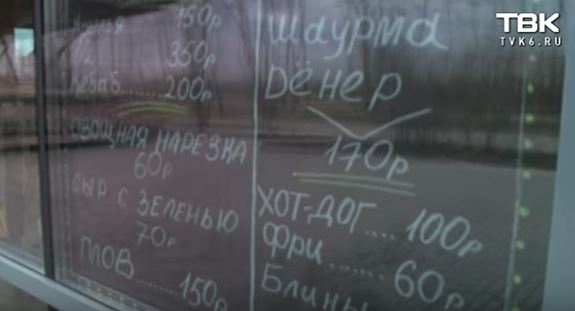 150р
1/2 350р
Кебаб........200р
ОВОЩНАЯ НАРЕЗКА
60р
СЫР С ЗЕЛЕНЬЮ
70р
ПЛОВ
.......150р
Шаурма
Dёнер
170р
ХОТ-ДОГ
.... 100р
Фри .... 60р
Блины
ТВК
TVK6.RU